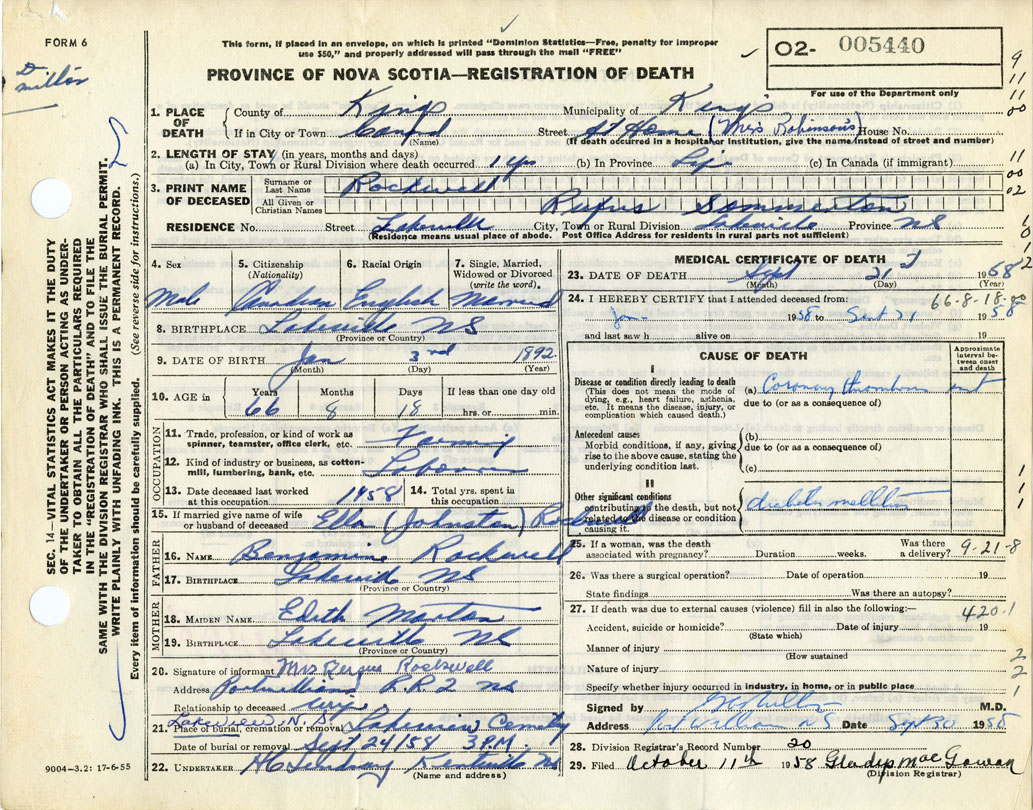 FORM 6
This form, if placed in an envelope, on which is printed "Dominion Statistics—Free, penalty for improper
use $50," and properly addressed will pass through the mail "FREE"
PROVINCE OF NOVA SCOTIA—REGISTRATION OF DEATH
O2- 005440
For use of the Department only
SEC. 14—VITAL STATISTICS ACT MAKES IT THE DUTY
OF THE UNDERTAKER OR PERSON ACTING AS UNDER-
TAKER TO OBTAIN ALL THE PARTICULARS REQUIRED
IN THE "REGISTRATION OF DEATH" AND TO FILE THE
SAME WITH THE DIVISION REGISTRAR WHO SHALL ISSUE THE BURIAL PERMIT.
WRITE PLAINLY WITH UNFADING INK. THIS IS A PERMANENT RECORD.
Every item of information should be carefully supplied. (See reverse side for instructions.)
1. PLACE OF DEATH
County of Kings Municipality of Kings
If in City or Town Street At Home (Mrs Robinson's) House No.
(Name) (If death occurred in a hospital or institution, give the name instead of street and number)
2. LENGTH OF STAY (in years, months and days)
(a) In City, Town or Rural Division where death occurred 1 yr (b) In Province Life (c) In Canada (if immigrant)
3. PRINT NAME OF DECEASED
Surname or Last Name Rockwell
All Given or Christian Names Rufus Sommerton
RESIDENCE No. Street Lakeville City, Town or Rural Division Lakeville Province NS
(Residence means usual place of abode. Post Office Address for residents in rural parts not sufficient)
4. Sex 5. Citizenship (Nationality) 6. Racial Origin 7. Single, Married, Widowed or Divorced (write the word).
Male Canadian English Married
8. BIRTHPLACE Lakeville NS
(Province or Country)
9. DATE OF BIRTH Jan 3rd 1892
(Month) (Day) (Year)
10. AGE in Years Months Days If less than one day
66 8 18 hrs. or min.
OCCUPATION
11. Trade, profession, or kind of work as spinner, teamster, office clerk, etc. Farming
12. Kind of industry or business, as cotton-mill, lumbering, bank, etc. Labourer
13. Date deceased last worked at this occupation 1958 14. Total yrs. spent in this occupation
15. If married give name of wife or husband of deceased Ella (Johnston) Rockwell
FATHER
16. NAME Benjamin Rockwell
17. BIRTHPLACE Lakeville NS
(Province or Country)
MOTHER
18. MAIDEN NAME Edith Morton
19. BIRTHPLACE Lakeville NS
(Province or Country)
20. Signature of informant Mrs Rockwell
Address Port Williams R.R.2 NS
Relationship to deceased wife
Lakeview, N.S.
21. Place of burial, cremation or removal Lakeview Cemetery
Date of burial or removal Sept 24/58 3 P.M.
22. UNDERTAKER H C Lindsay Kentville NS
(Name and address)
9004—3.2: 17-6-55
MEDICAL CERTIFICATE OF DEATH
23. DATE OF DEATH Sept 21st 1958
(Month) (Day) (Year)
66-8-18
24. I HEREBY CERTIFY that I attended deceased from:
Jan 1958 to Sept 21 1958
and last saw h alive on 19
CAUSE OF DEATH
Approximate interval between onset and death
I
Disease or condition directly leading to death
(This does not mean the mode of dying, e.g., heart failure, asthenia, etc. It means the disease, injury, or complication which caused death.)
(a) Coronary thrombosis
due to (or as a consequence of)
Antecedent causes
Morbid conditions, if any, giving rise to the above cause, stating the underlying condition last.
(b)
due to (or as a consequence of)
(c)
II
Other significant conditions
contributing to the death, but not related to the disease or condition causing it.
diabetes mellitus
25. If a woman, was the death associated with pregnancy? Duration weeks. Was there a delivery? 9-21-8
26. Was there a surgical operation? Date of operation 19
State findings Was there an autopsy?
27. If death was due to external causes (violence) fill in also the following:—
420.1
Accident, suicide or homicide? Date of injury 19
(State which)
Manner of injury
(How sustained)
Nature of injury
Specify whether injury occurred in industry, in home, or in public place
Signed by M.D.
Address Port Williams N.S. Date Sept 30 1958
28. Division Registrar's Record Number 20
29. Filed October 11th 1958 Gladys MacGowan
(Division Registrar)